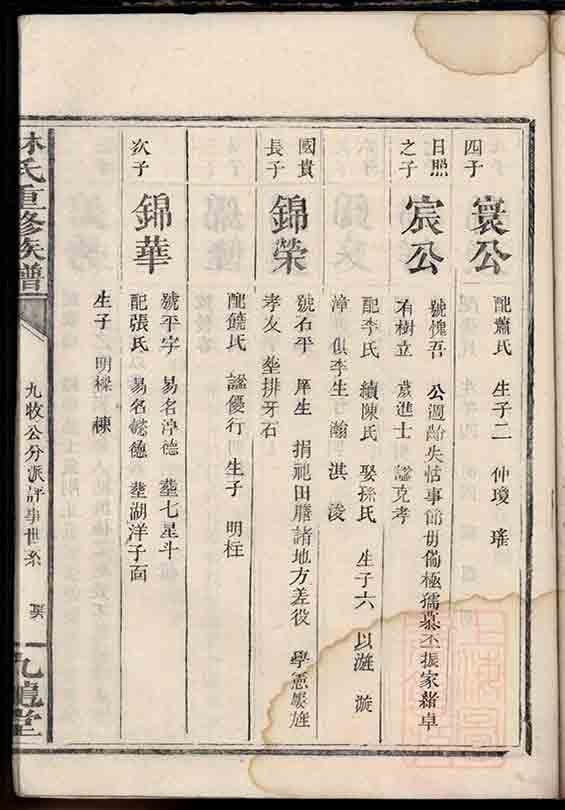 四子
寰公
配蕭氏 生子二 仲瓊 瑤
日照
之子
宸公
號愧吾 公週齡失恬事節毋備極孺慕丕振家緒卓
有樹立 歲進士 謚克孝
配李氏 續陳氏 娶孫氏 生子六 以漣 漩
漳 俱李生 瀚 淇 浚
國貴
長子
錦榮
號石平 庠生 捐祀田膳諸地方差役 學憲屢旌
孝友 塟排牙石
配饒氏 謚優行 生子 明柱
次子
錦華
號平宇 易名淳德 塟七星斗
配張氏 易名懿德 塟湖洋子面
生子 明樑 棟
林氏重修族譜
九牧公分派評事世系
九龍堂